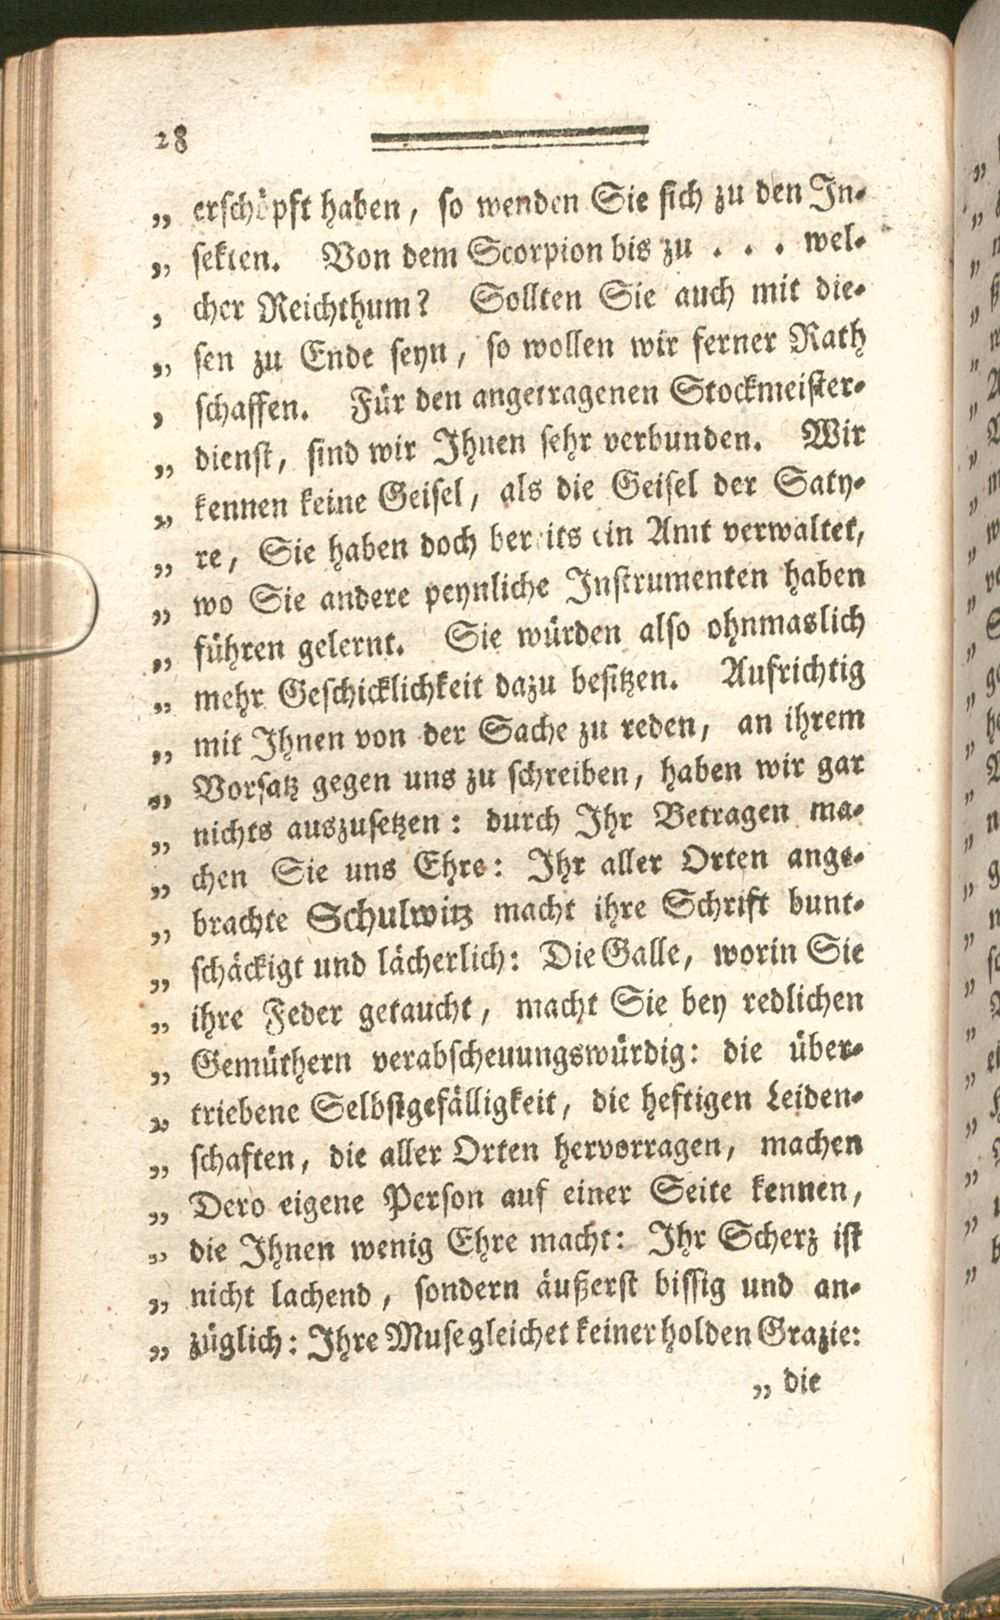 28
„ erschöpft haben, so wenden Sie sich zu den In-
„ sekten. Von dem Scorpion bis zu . . . wel-
, cher Reichthum? Sollten Sie auch mit die-
„ sen zu Ende seyn, so wollen wir ferner Rath
, schaffen. Für den angetragenen Stockmeister-
„ dienst, sind wir Ihnen sehr verbunden. Wir
„ kennen keine Geisel, als die Geisel der Saty-
„ re, Sie haben doch bereits ein Amt verwaltet,
„ wo Sie andere peynliche Instrumenten haben
„ führen gelernt. Sie würden also ohnmaslich
„ mehr Geschicklichkeit dazu besitzen. Aufrichtig
„ mit Ihnen von der Sache zu reden, an ihrem
„ Vorsatz gegen uns zu schreiben, haben wir gar
„ nichts auszusetzen: durch Ihr Betragen ma-
„ chen Sie uns Ehre: Ihr aller Orten ange-
„ brachte Schulwitz macht ihre Schrift bunt-
„ schäckigt und lächerlich: Die Galle, worin Sie
„ ihre Feder getaucht, macht Sie bey redlichen
„ Gemüthern verabscheuungswürdig: die über-
„ triebene Selbstgefälligkeit, die heftigen Leiden-
„ schaften, die aller Orten hervorragen, machen
„ Dero eigene Person auf einer Seite kennen,
„ die Ihnen wenig Ehre macht: Ihr Scherz ist
„ nicht lachend, sondern äußerst bissig und an-
„ züglich: Ihre Muse gleichet keiner holden Grazie:
„ die